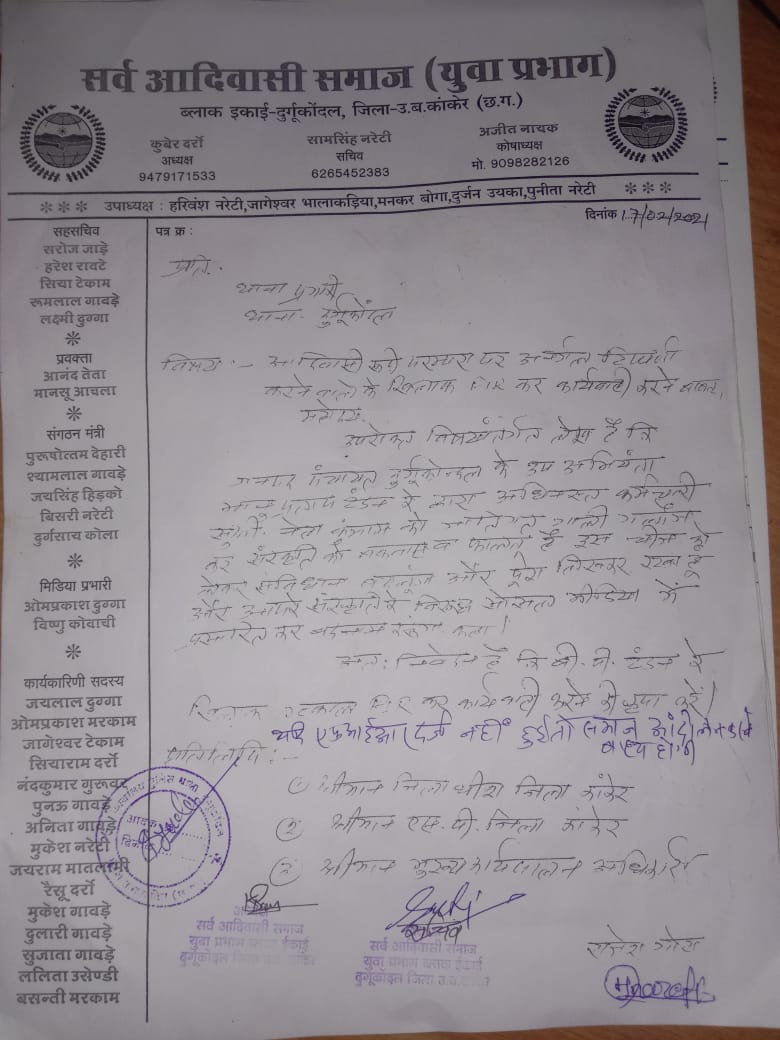 सर्व आदिवासी समाज (युवा प्रभाग)
ब्लाक इकाई-दुर्गूकोंदल, जिला-उ.ब.कांकेर (छ.ग.)
कुबेर दर्रो
अध्यक्ष
9479171533
सामसिंह नरेटी
सचिव
6265452383
अजीत नायक
कोषाध्यक्ष
मो. 9098282126
*** उपाध्यक्ष : हरिवंश नरेटी,जागेश्वर भालाकड़िया,मनकर बोगा,दुर्जन उयका,पुनीता नरेटी ***
दिनांक 17/02/2021
पत्र क्र :
सहसचिव
सरोज जाड़े
हरेश रावटे
सिया टेकाम
रूमलाल गावड़े
लक्ष्मी दुग्गा
*
प्रवक्ता
आनंद तेता
मानसू आचला
*
संगठन मंत्री
पुरूषोत्तम देहारी
श्यामलाल गावड़े
जयसिंह हिड़को
बिसरी नरेटी
दुर्गसाय कोला
*
मिडिया प्रभारी
ओमप्रकाश दुग्गा
विष्णु कोवाची
*
कार्यकारिणी सदस्य
जयलाल दुग्गा
ओमप्रकाश मरकाम
जागेश्वर टेकाम
सियाराम दर्रो
नंदकुमार गुरूवर
पुनऊ गावड़े
अनिता गावड़े
मुकेश नरेटी
जयराम मातलामी
रैसू दर्रो
मुकेश गावड़े
दुलारी गावड़े
सुजाता गावड़े
ललिता उसेण्डी
बसन्ती मरकाम
प्रति,
थाना प्रभारी
थाना- दुर्गूकोंदल
विषय :- आदिवासी रूढ़ी परम्परा पर अनर्गल टिप्पणी
करने वाले के खिलाफ कर कार्यवाही करने बाबत्,
महोदय,
उपरोक्त विषयांतर्गत लेख है कि
पंचायत दुर्गूकोन्दल के उप अभियंता
टंडन के द्वारा कर्मचारी
को गाली गलौज
कर संस्कृति को बकवास व फालतू है इस चीज को
लेकर संविधान और पूरा लिखकर रखा हूं
और संस्कृति के विरुद्ध सोसल मीडिया में
प्रसारित कर बदनाम
अतः निवेदन है कि बी.पी. टंडन के
खिलाफ तत्काल कर कार्यवाही करने की कृपा करें।
यदि एफआईआर दर्ज नहीं हुई तो समाज आंदोलन करने
बाध्य होगी
प्रतिलिपि :-
① श्रीमान जिलाधीश जिला कांकेर
② श्रीमान एस.पी. जिला कांकेर
③ श्रीमान मुख्य कार्यपालन अधिकारी
सर्व आदिवासी समाज
युवा प्रभाग ब्लाक ईकाई
दुर्गूकोंदल जिला उ.ब.कांकेर
सचिव
सर्व आदिवासी समाज
युवा प्रभाग ब्लाक ईकाई
दुर्गूकोंदल जिला उ.ब.कांकेर